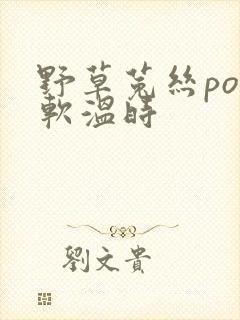 野草菟丝po
软温时
刘文贵